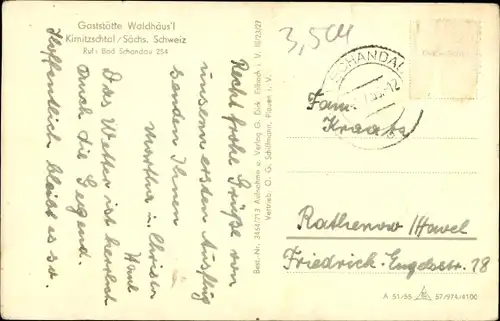 Gaststätte Waldhäus'l
Kirnitzschtal/Sächs. Schweiz
Ruf: Bad Schandau 254
3,50
Recht frohe Grüße von
unserm ersten Ausflug
senden Ihnen
Martha u. Christa
Das Wetter ist herrlich
auch die Gegend.
Hoffentlich bleibt es so.
Best.-Nr. 3464/713 Aufnahme u. Verlag G. Dick, Erlbach i. V. III/23/27
Vertrieb: O. G. Schillmann, Plauen i. V.
SCHANDAU
Fam.
Kraatz
Rathenow/Havel
Friedrich-Engelsstr. 18
A 51/55 57/974/4100